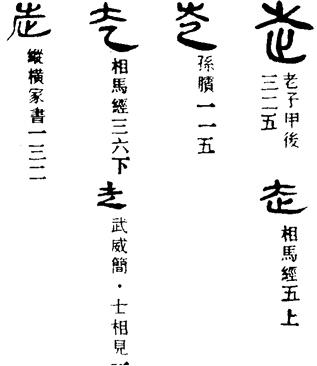 走
老子甲後
三二五
走
相馬經五上
走
孫臏一一五
走
相馬經三六下
走
武威簡·士相見
走
縱橫家書一三二